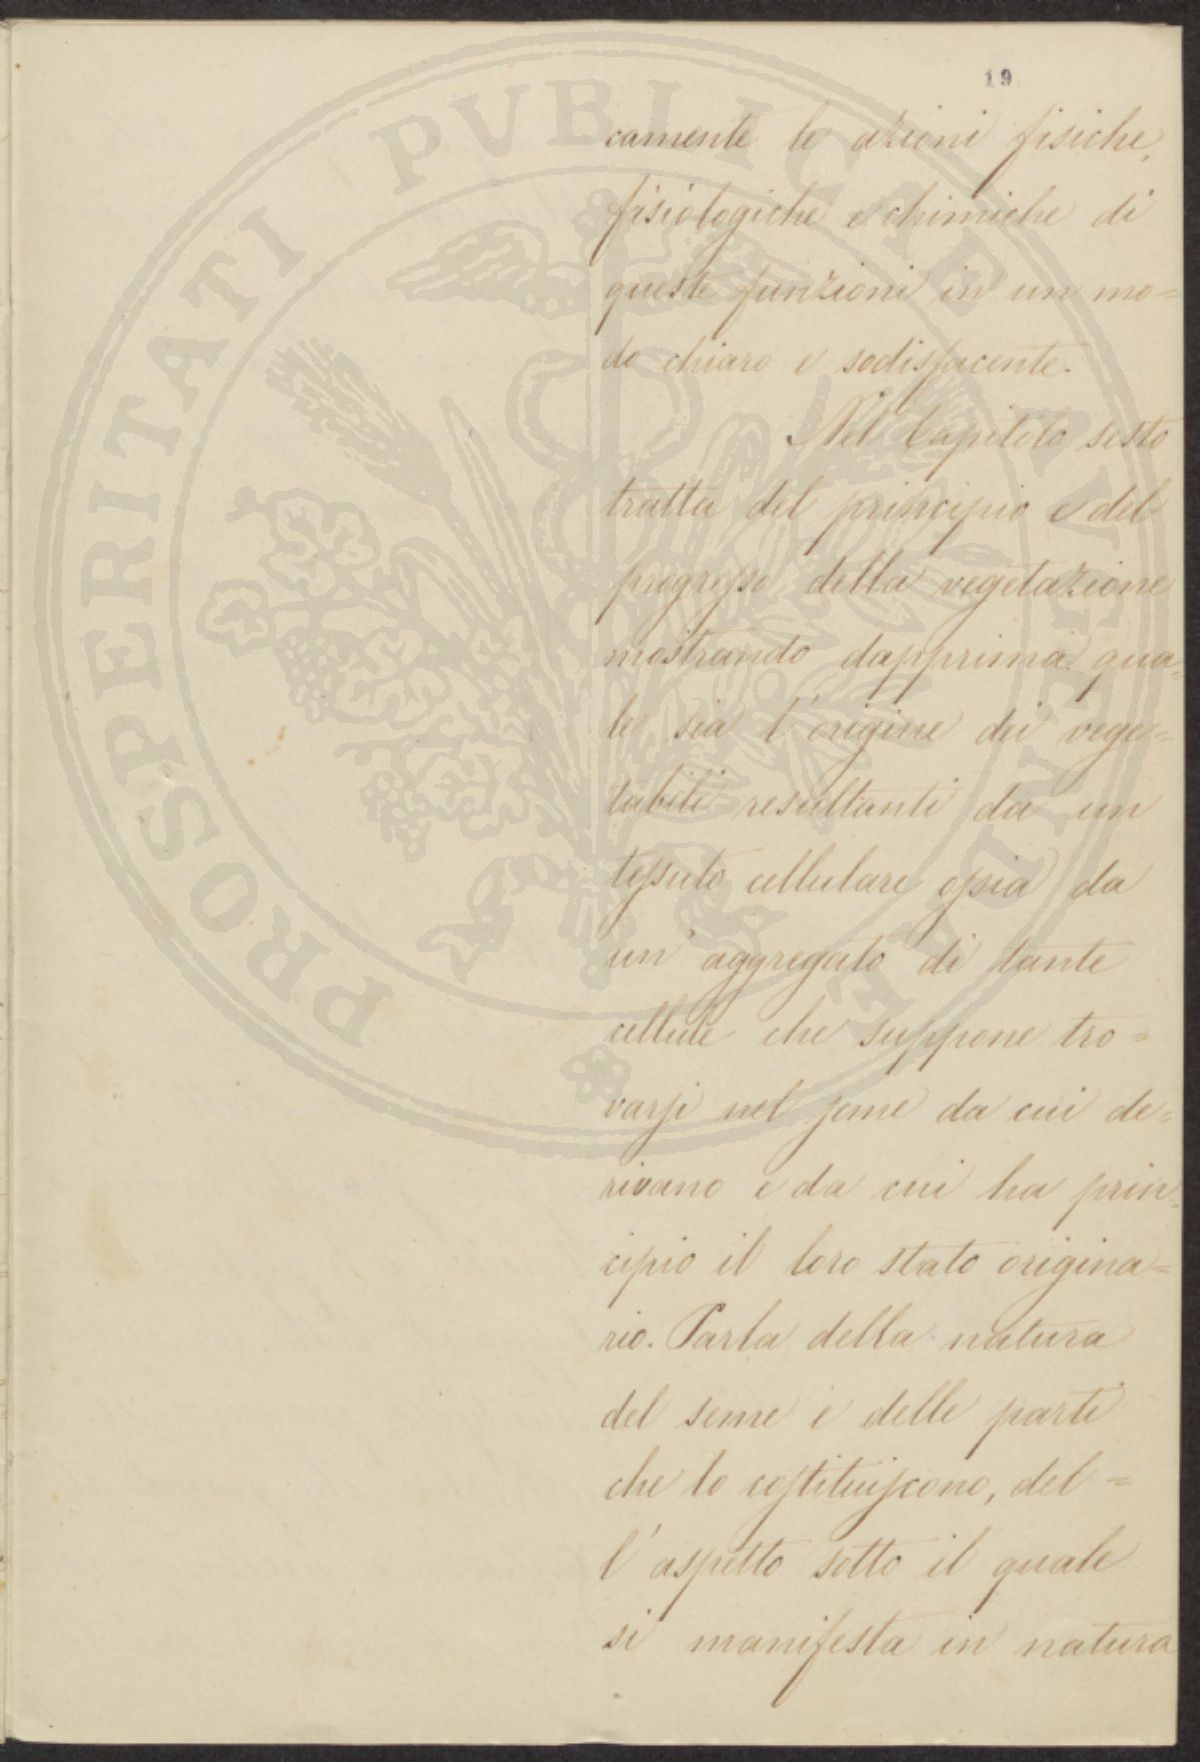 19
camente le azioni fisiche,
fisiologiche e chimiche di
queste funzioni in un mo=
do chiaro e sodisfacente.
Nel Capitolo sesto
tratta del principio e del
progresso della vegetazione
mostrando dapprima qua=
le sia l'origine dei vege=
tabili resultanti da un
tessuto cellulare ossia da
un' aggregato di tante
cellule che suppone tro=
varsi nel seme da cui de=
rivano e da cui ha prin=
cipio il loro stato origina=
rio. Parla della natura
del seme e delle parti
che lo costituiscono, del=
l'aspetto sotto il quale
si manifesta in natura
PROSPERITATI PVBLICAE AVGENDAE